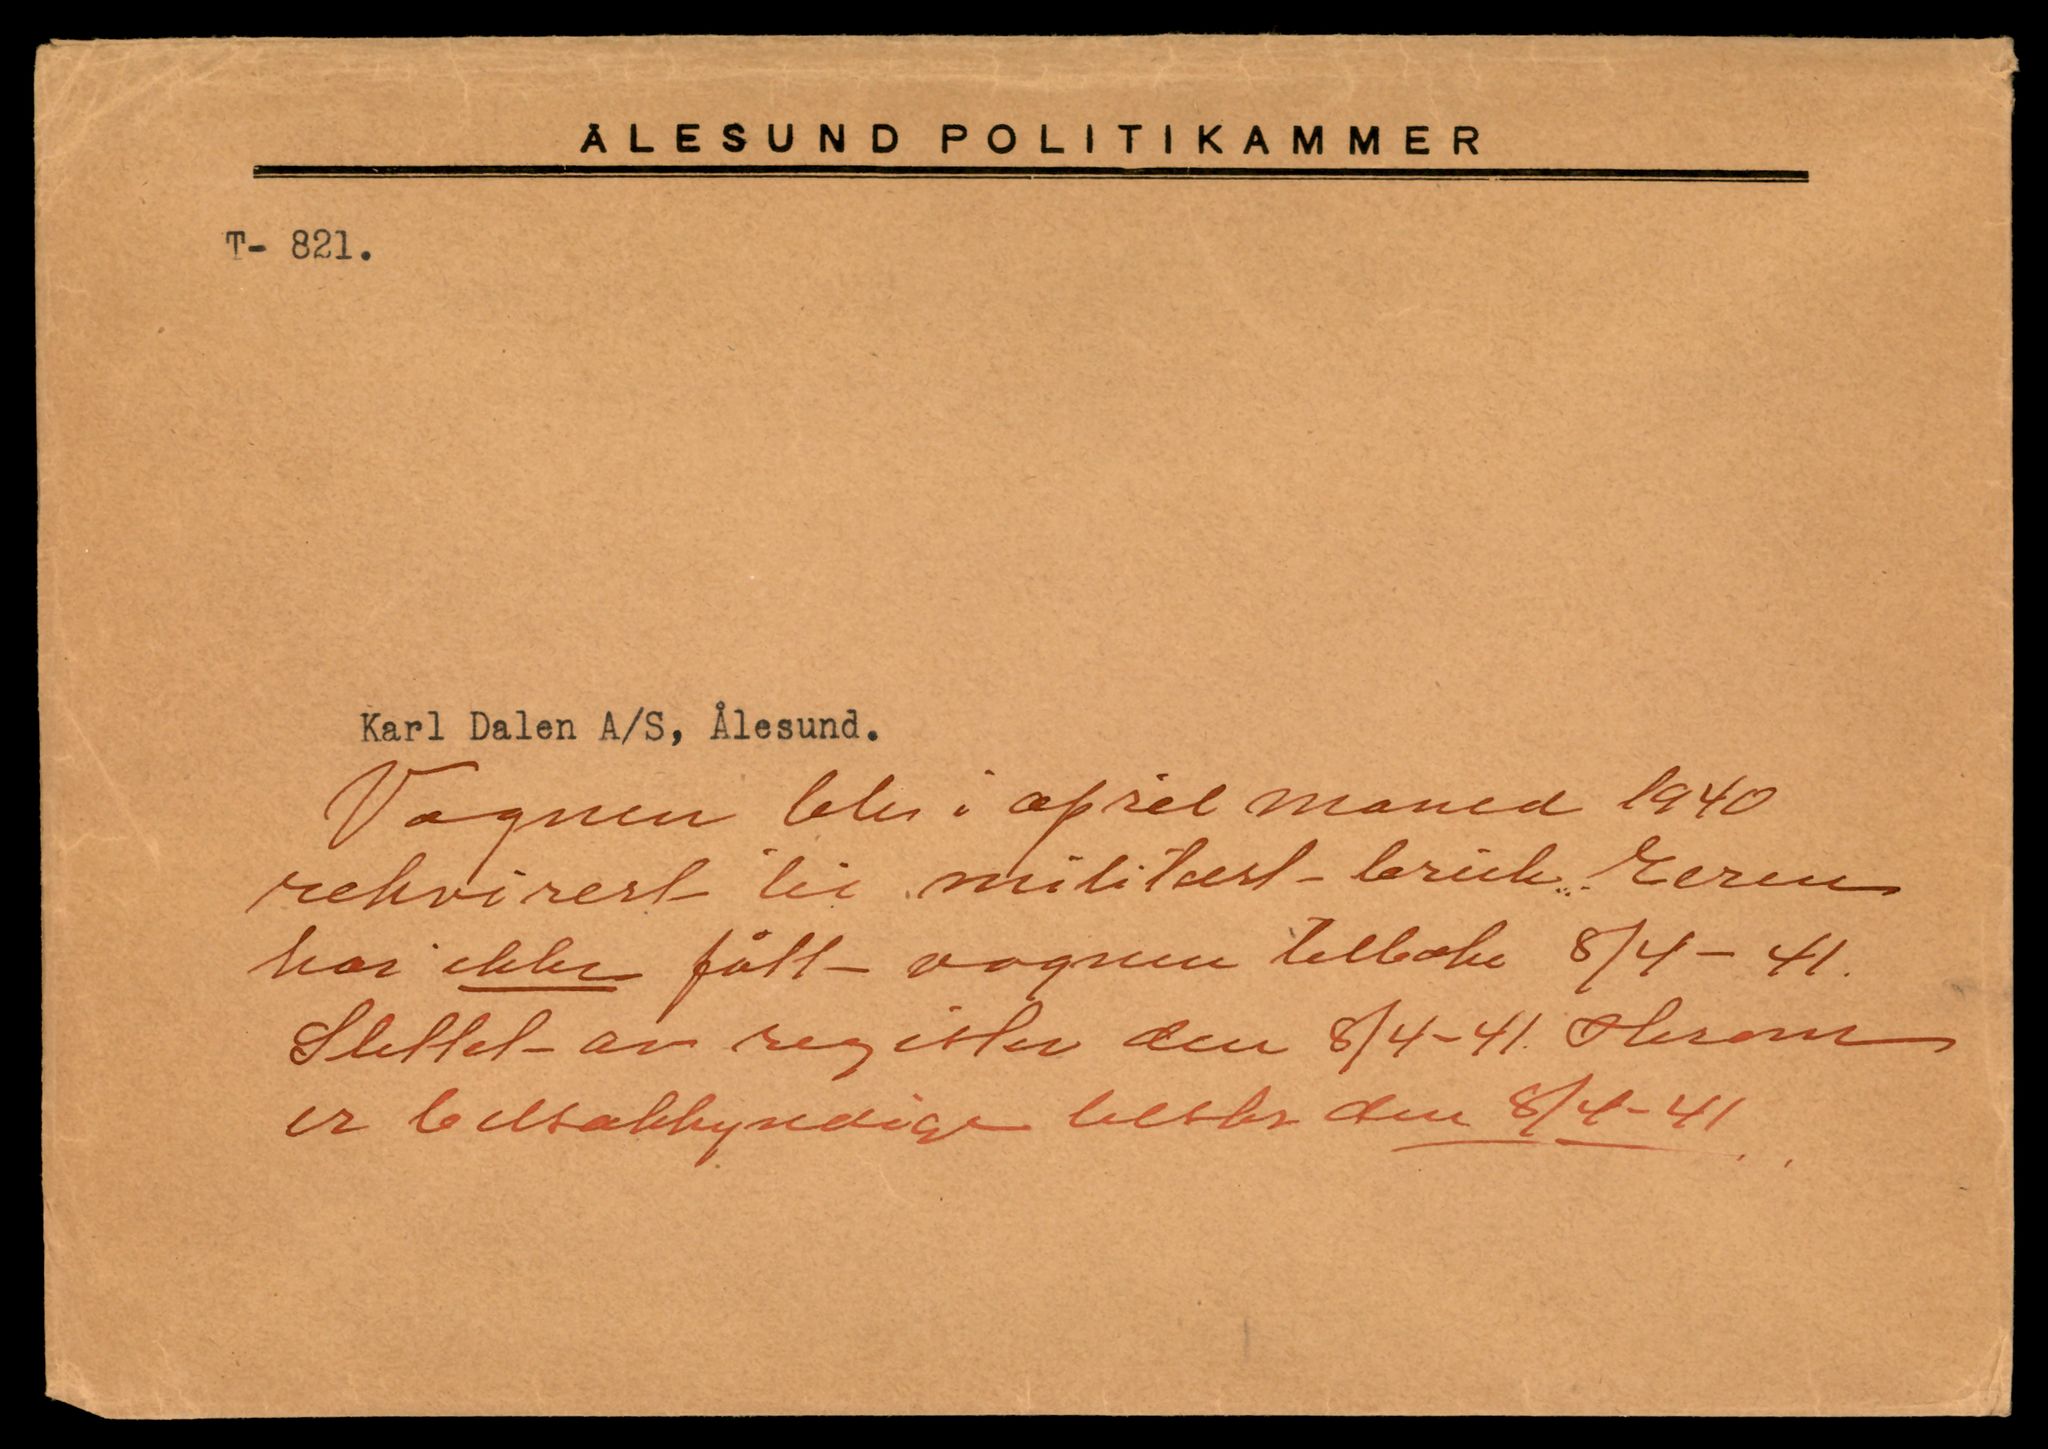 ÅLESUND POLITIKAMMER
T- 821.
Karl Dalen A/S, Ålesund.
Vognen blev i april maned 1940
rekvirert til militært bruk. Eieren
har ikke fått vognen tilbake 8/4-41.
Slettet av register den 8/4-41. Herom
er bilsakkyndige tilskr. den 8/4-41